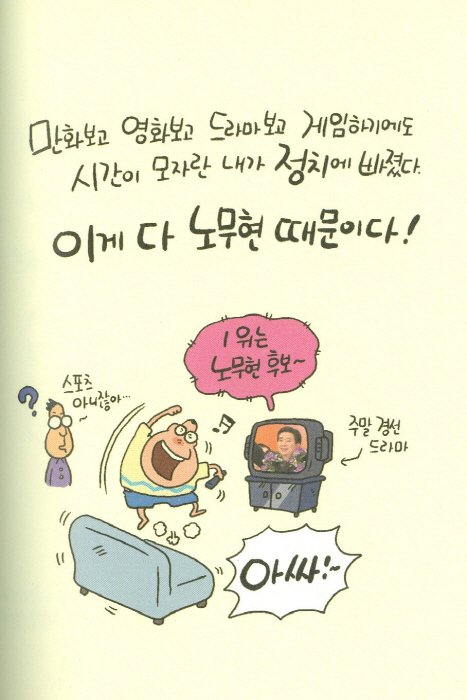 만화보고 영화보고 드라마보고 게임하기에도
시간이 모자란 내가 정치에 빠졌다.
이게 다 노무현 때문이다!
1위는
노무현 후보~
스포츠
아니잖아...
?
주말 경선
드라마
아싸!~